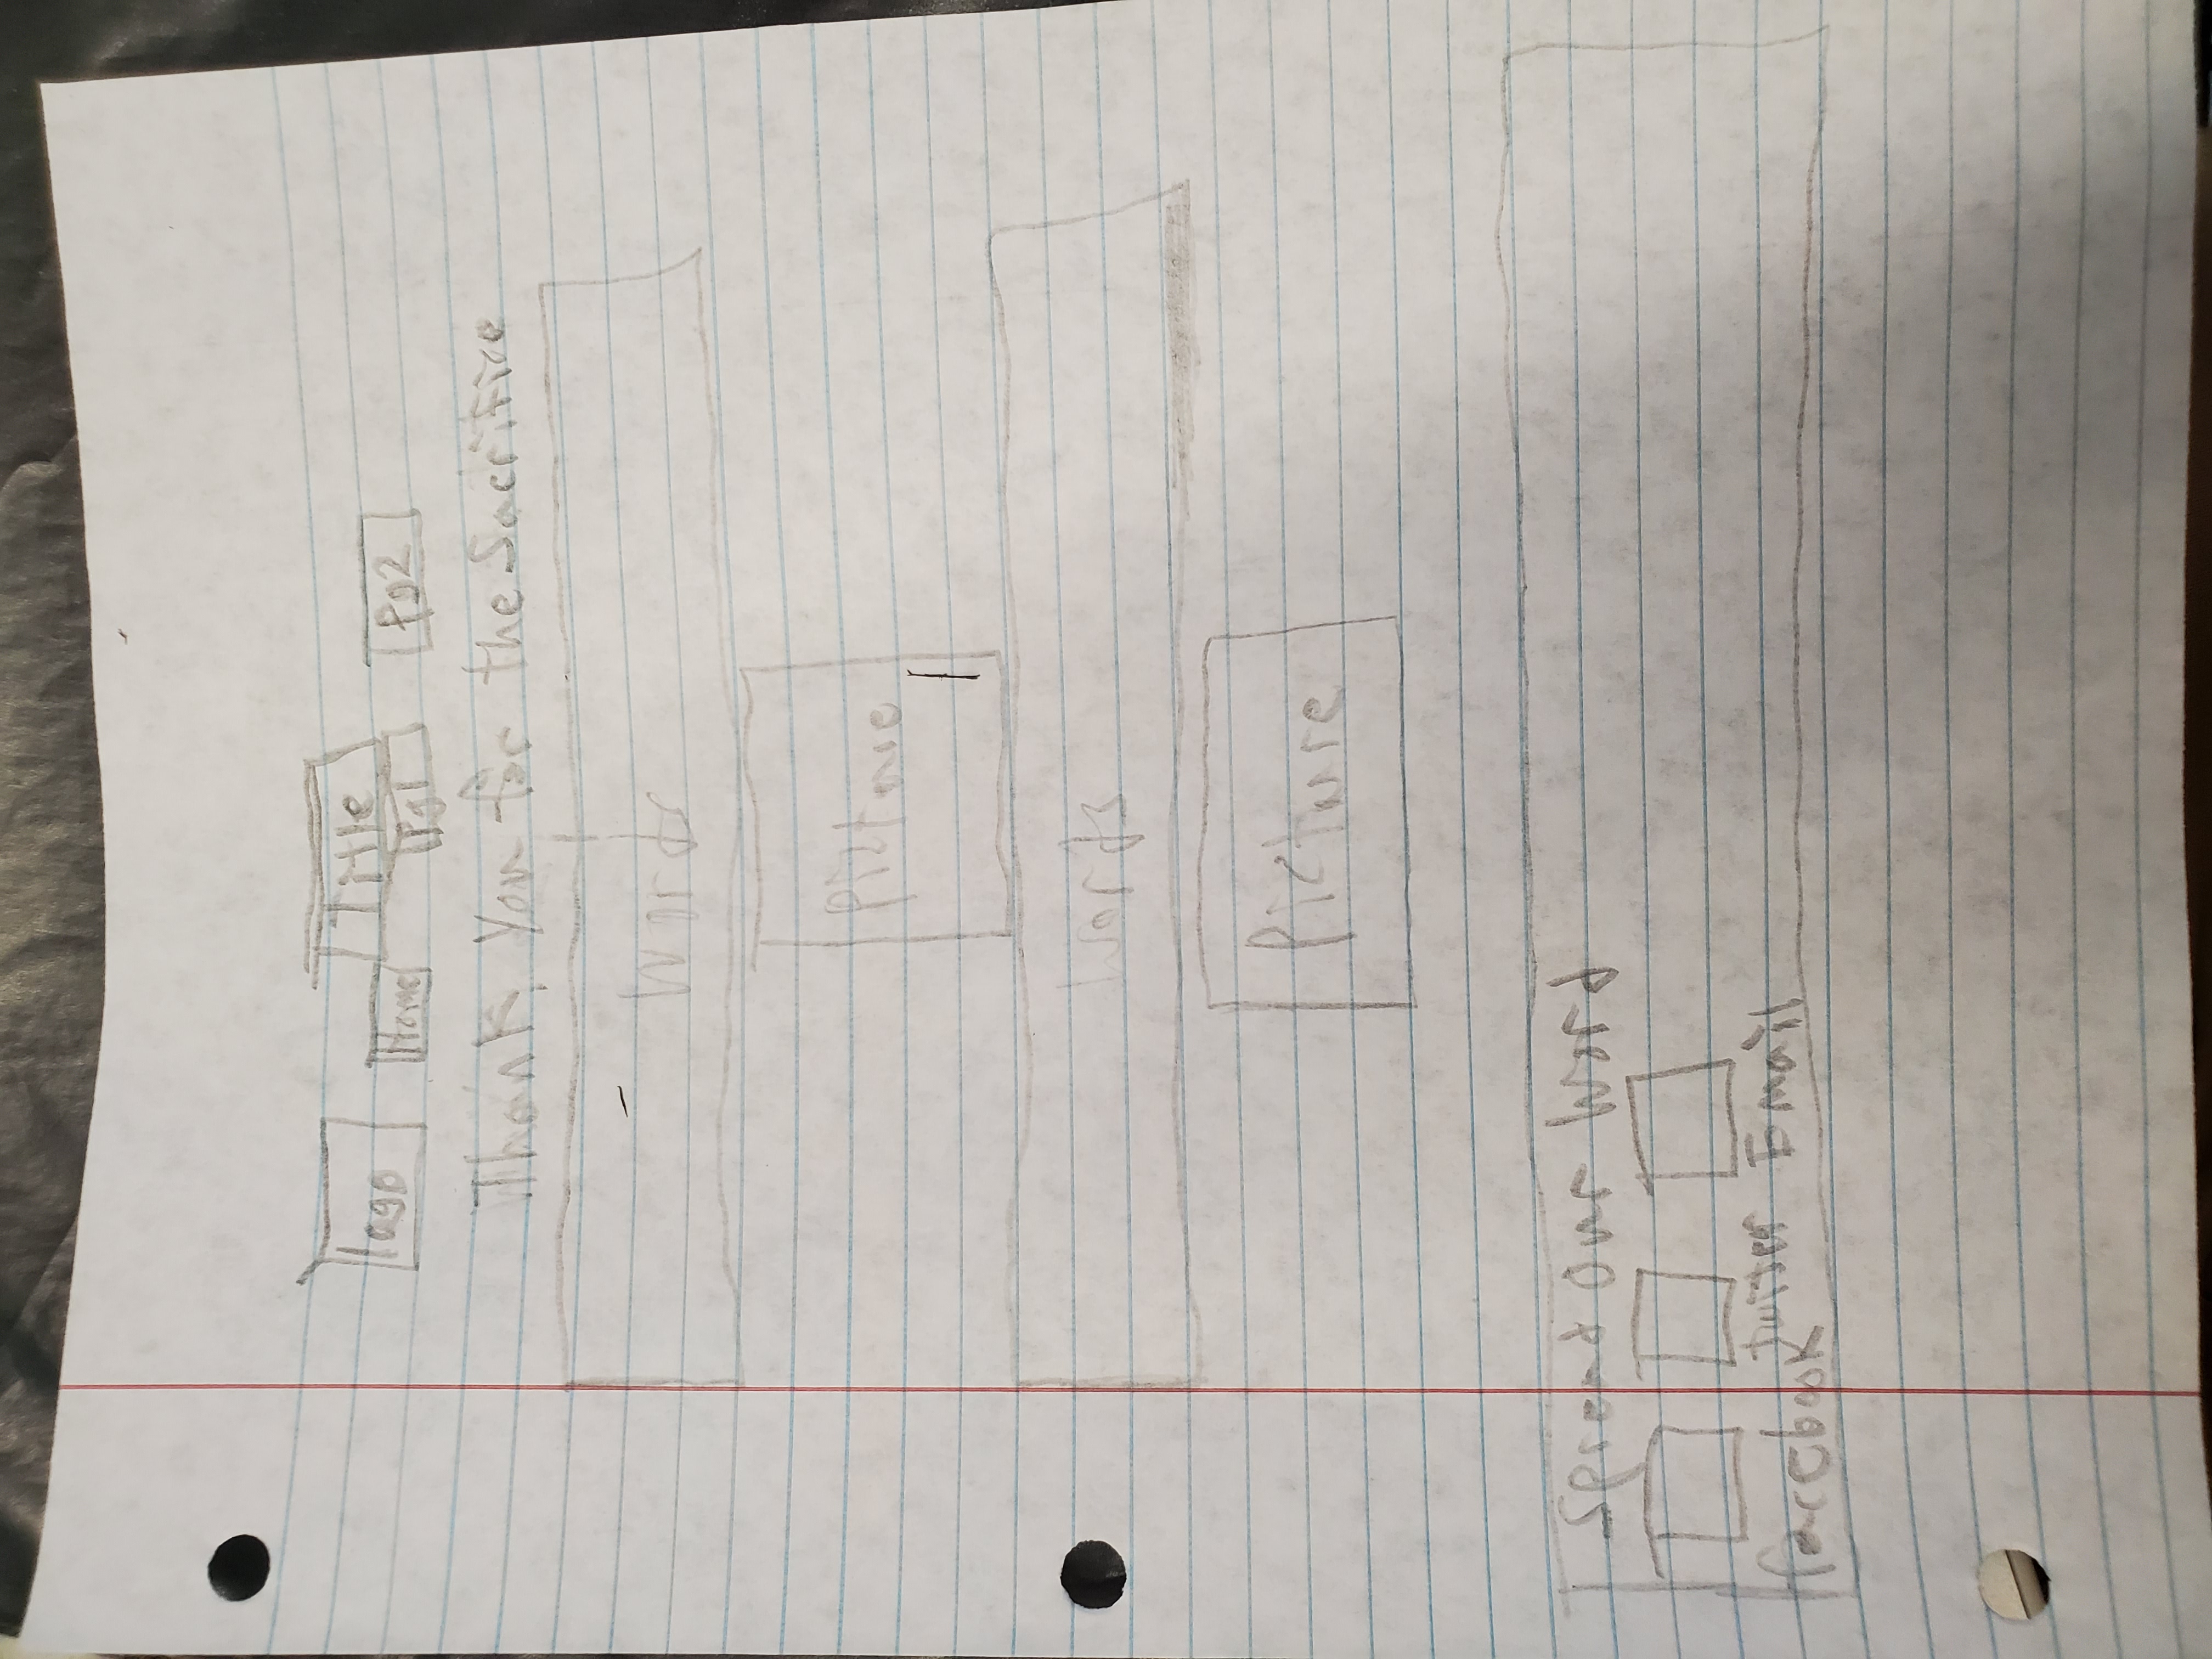 logo
Title
Home
Pg1
Pg2
Thank, You for the Sacrifice
Words
Picture
Words
Picture
Spread Our Word
facebook
twitter
Email